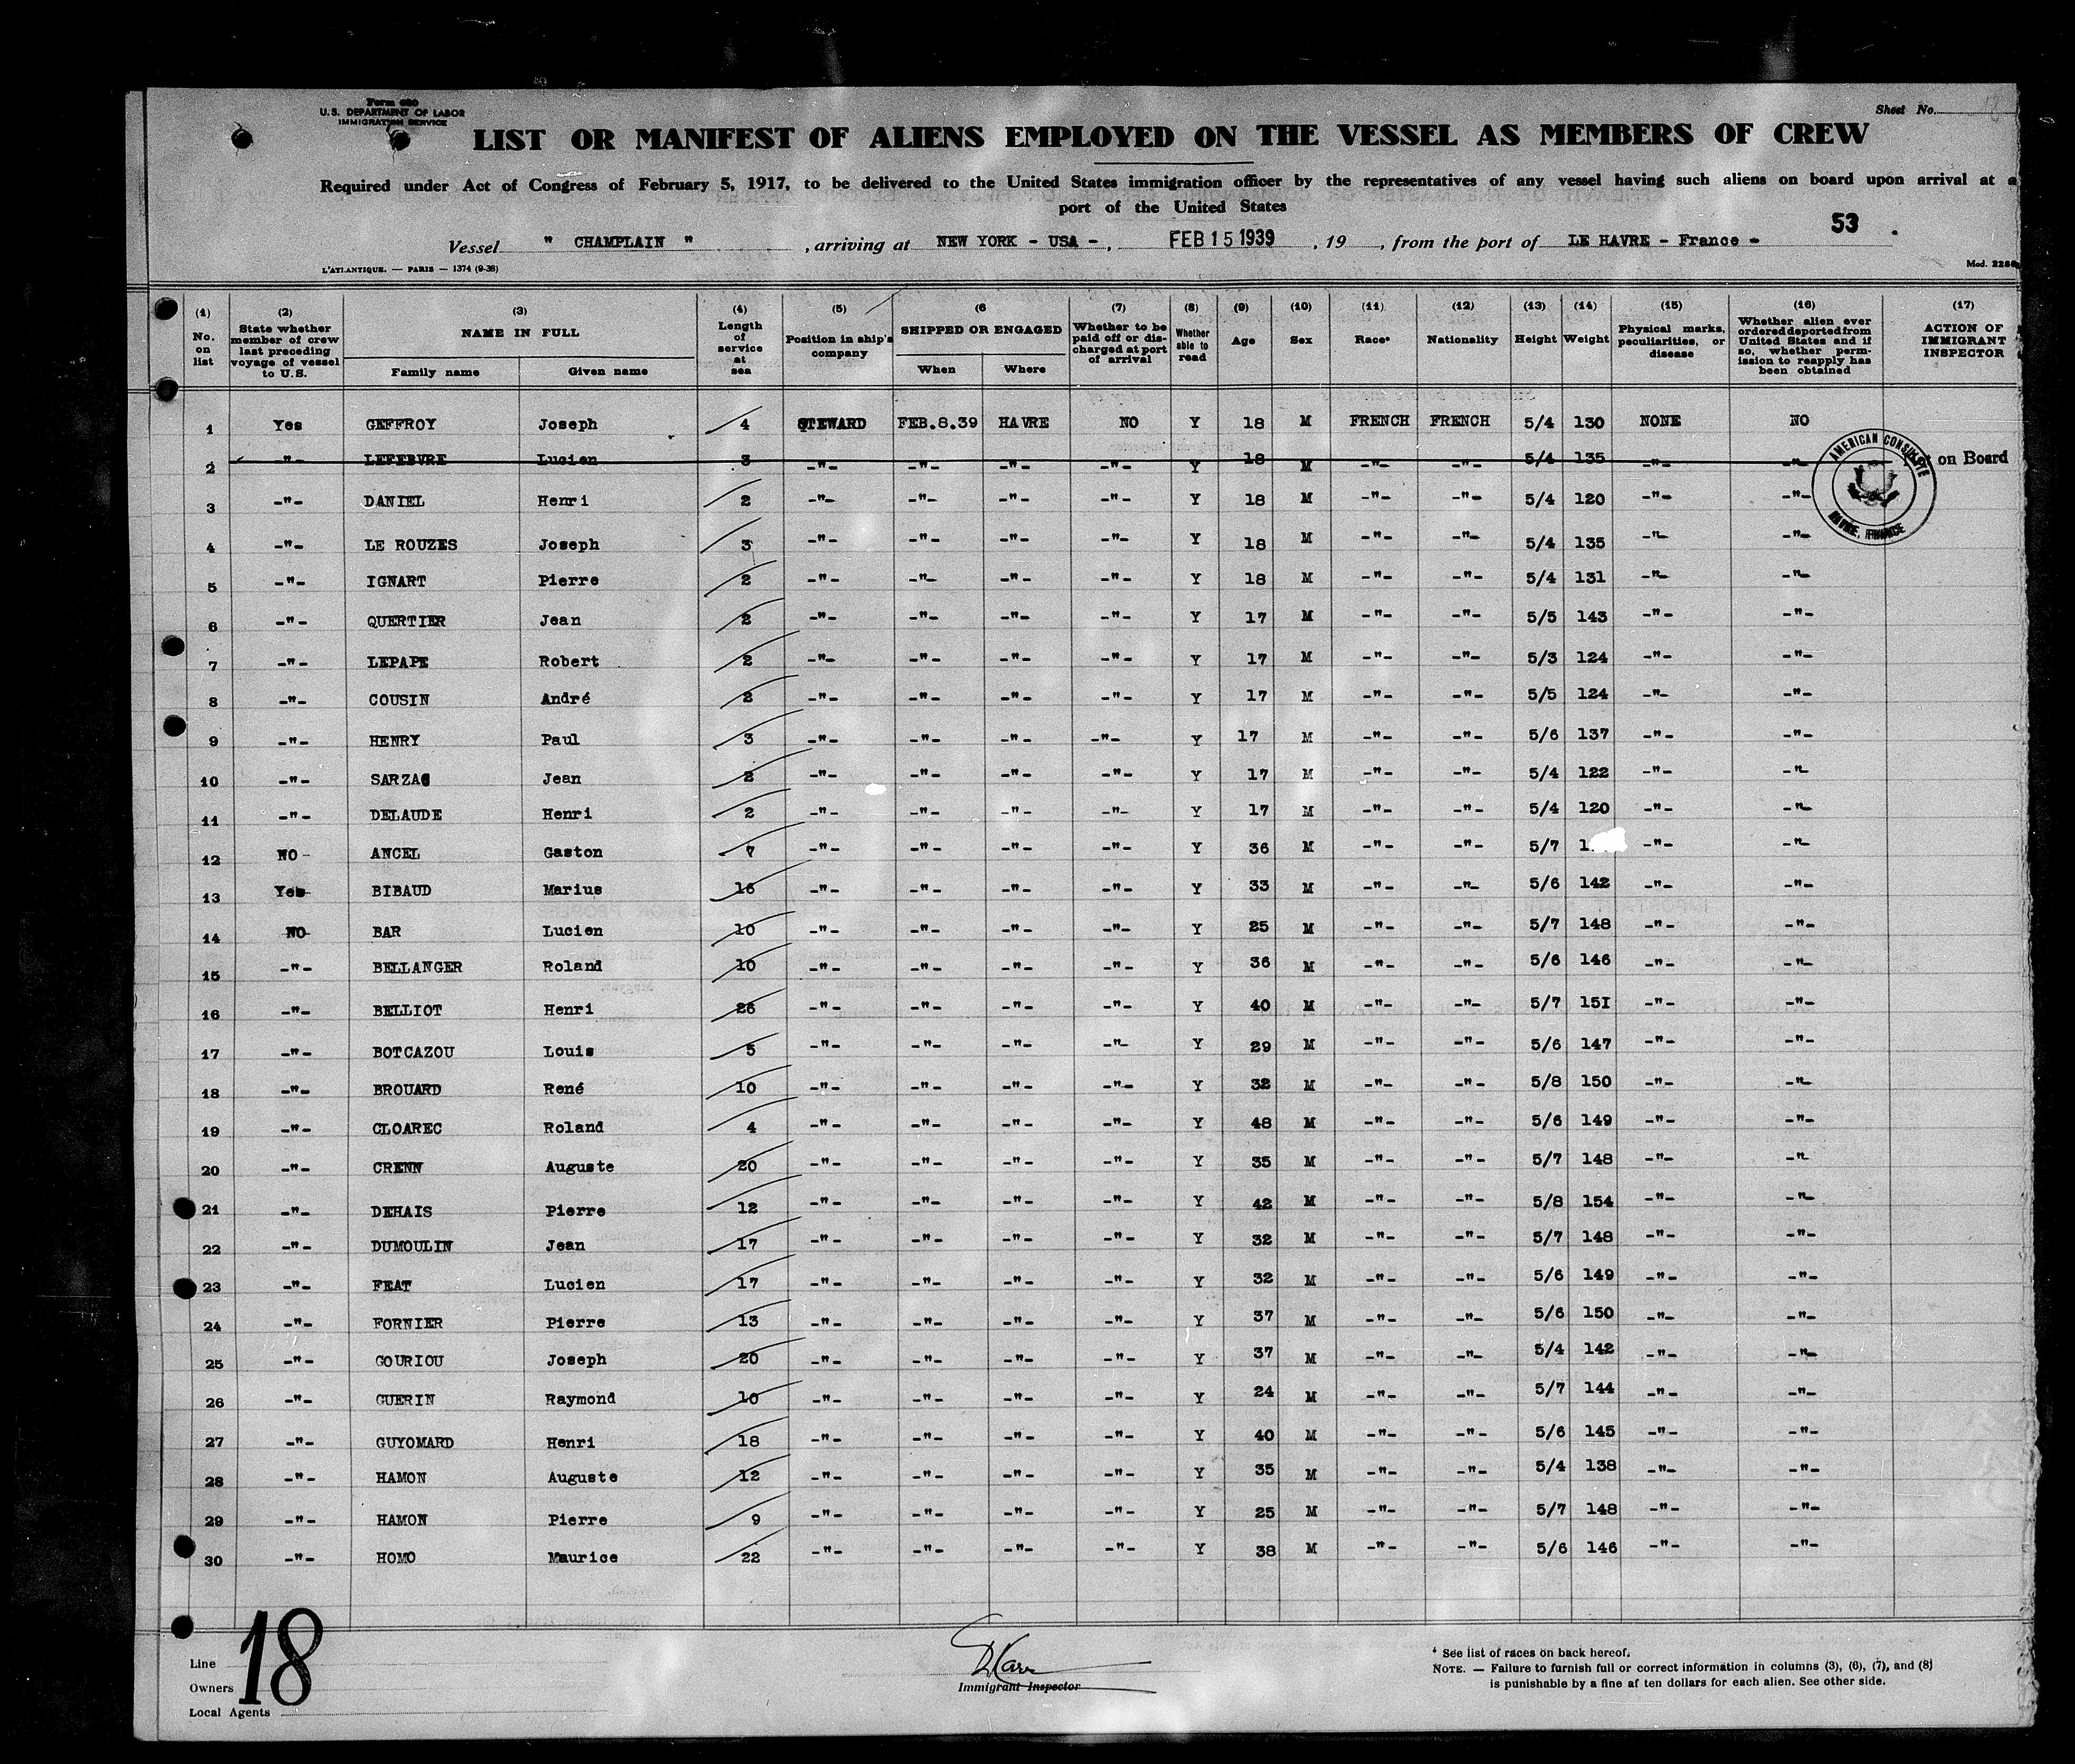 Form 680
U.S. DEPARTMENT OF LABOR
IMMIGRATION SERVICE
Sheet No. 18
LIST OR MANIFEST OF ALIENS EMPLOYED ON THE VESSEL AS MEMBERS OF CREW
Required under Act of Congress of February 5, 1917, to be delivered to the United States immigration officer by the representatives of any vessel having such aliens on board upon arrival at a
port of the United States
53
Vessel " CHAMPLAIN " , arriving at NEW YORK - USA - , FEB 15 1939 , 19 , from the port of LE HAVRE - France -
L'ATLANTIQUE. — PARIS — 1374 (9-38)
(1) No. on list (2) State whether member of crew last preceding voyage of vessel to U.S. (3) NAME IN FULL Family name Given name (4) Length of service at sea (5) Position in ship's company (6 SHIPPED OR ENGAGED When Where (7) Whether to be paid off or discharged at port of arrival (8) Whether able to read (9) Age (10) Sex (11) Race* (12) Nationality (13) Height (14) Weight (15) Physical marks, peculiarities, or disease (16) Whether alien ever ordered deported from United States and if so, whether permission to reapply has been obtained (17) ACTION OF IMMIGRANT INSPECTOR
1 Yes GEFFROY Joseph 4 STEWARD FEB.8.39 HAVRE NO Y 18 M FRENCH FRENCH 5/4 130 NONE NO
2 -"- LEFEBVRE Lucien 3 -"- -"- -"- -"- Y 18 M -"- -"- 5/4 135 -"- -"- on Board
AMERICAN CONSULATE HAVRE, FRANCE
3 -"- DANIEL Henri 2 -"- -"- -"- -"- Y 18 M -"- -"- 5/4 120 -"- -"-
4 -"- LE ROUZES Joseph 3 -"- -"- -"- -"- Y 18 M -"- -"- 5/4 135 -"- -"-
5 -"- IGNART Pierre 2 -"- -"- -"- -"- Y 18 M -"- -"- 5/4 131 -"- -"-
6 -"- QUERTIER Jean 2 -"- -"- -"- -"- Y 17 M -"- -"- 5/5 143 -"- -"-
7 -"- LEPAPE Robert 2 -"- -"- -"- -"- Y 17 M -"- -"- 5/3 124 -"- -"-
8 -"- COUSIN André 2 -"- -"- -"- -"- Y 17 M -"- -"- 5/5 124 -"- -"-
9 -"- HENRY Paul 3 -"- -"- -"- -"- Y 17 M -"- -"- 5/6 137 -"- -"-
10 -"- SARZAC Jean 2 -"- -"- -"- -"- Y 17 M -"- -"- 5/4 122 -"- -"-
11 -"- DELAUDE Henri 2 -"- -"- -"- -"- Y 17 M -"- -"- 5/4 120 -"- -"-
12 NO - ANCEL Gaston 7 -"- -"- -"- -"- Y 36 M -"- -"- 5/7 -"- -"-
13 Yes BIBAUD Marius 16 -"- -"- -"- -"- Y 33 M -"- -"- 5/6 142 -"- -"-
14 NO BAR Lucien 10 -"- -"- -"- -"- Y 25 M -"- -"- 5/7 148 -"- -"-
15 -"- BELLANGER Roland 10 -"- -"- -"- -"- Y 36 M -"- -"- 5/6 146 -"- -"-
16 -"- BELLIOT Henri 26 -"- -"- -"- -"- Y 40 M -"- -"- 5/7 15I -"- -"-
17 -"- BOTCAZOU Louis 5 -"- -"- -"- -"- Y 29 M -"- -"- 5/6 147 -"- -"-
18 -"- BROUARD René 10 -"- -"- -"- -"- Y 32 M -"- -"- 5/8 150 -"- -"-
19 -"- CLOAREC Roland 4 -"- -"- -"- -"- Y 48 M -"- -"- 5/6 149 -"- -"-
20 -"- CRENN Auguste 20 -"- -"- -"- -"- Y 35 M -"- -"- 5/7 148 -"- -"-
21 -"- DEHAIS Pierre 12 -"- -"- -"- -"- Y 42 M -"- -"- 5/8 154 -"- -"-
22 -"- DUMOULIN Jean 17 -"- -"- -"- -"- Y 32 M -"- -"- 5/7 148 -"- -"-
23 -"- FEAT Lucien 17 -"- -"- -"- -"- Y 32 M -"- -"- 5/6 149 -"- -"-
24 -"- FORNIER Pierre 13 -"- -"- -"- -"- Y 37 M -"- -"- 5/6 150 -"- -"-
25 -"- GOURIOU Joseph 20 -"- -"- -"- -"- Y 37 M -"- -"- 5/4 142 -"- -"-
26 -"- GUERIN Raymond 10 -"- -"- -"- -"- Y 24 M -"- -"- 5/7 144 -"- -"-
27 -"- GUYOMARD Henri 18 -"- -"- -"- -"- Y 40 M -"- -"- 5/6 145 -"- -"-
28 -"- HAMON Auguste 12 -"- -"- -"- -"- Y 35 M -"- -"- 5/4 138 -"- -"-
29 -"- HAMON Pierre 9 -"- -"- -"- -"- Y 25 M -"- -"- 5/7 148 -"- -"-
30 -"- HOMO Maurice 22 -"- -"- -"- -"- Y 38 M -"- -"- 5/6 146 -"- -"-
18
Line
Owners
Local Agents
Immigrant Inspector
* See list of races on back hereof.
NOTE. — Failure to furnish full or correct information in columns (3), (6), (7), and (8)
is punishable by a fine af ten dollars for each alien. See other side.